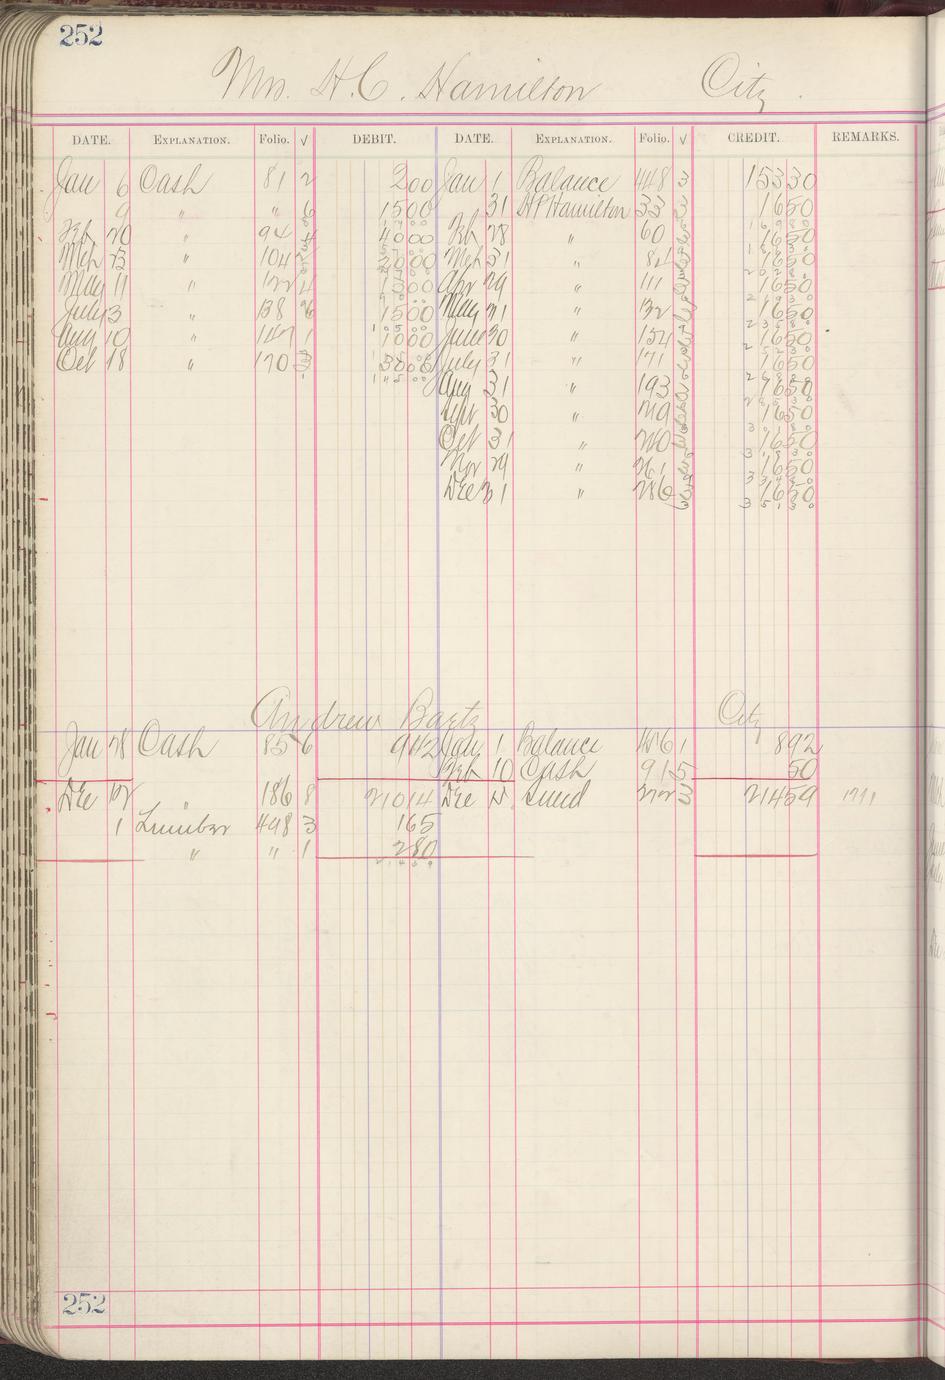 252
Mrs. H. C. Hamilton City
DATE. EXPLANATION. Folio. √ DEBIT. DATE. EXPLANATION. Folio. √ CREDIT. REMARKS.
Jan 6 Cash 81 2 200 Jan 1 Balance 448 3 15330
9 " " 6 1500 31 H P Hamilton 33 3 1650
Feb 20 " 94 4 4000 Feb 28 " 60 1650
Mch 23 " 104 2000 Mch 31 " 84 1650
May 11 " 122 4 1500 Apr 29 " 111 1650
July 3 " 138 1500 May 31 " 132 1650
Aug 10 " 147 1 1000 June 30 " 154 1650
Oct 18 " 170 3 3000 July 31 " 171 1650
Aug 31 " 193 1650
Sept 30 " 219 1650
Oct 31 " 240 1650
Nov 29 " 261 1650
Dec 31 " 286 1650
3 5 1 3 0
Andrew Bartz City
Jan 28 Cash 85 6 942 Jan 1 Balance 486 1 892
Feb 10 Cash 91 5 50
Dec 12 " 186 8 21014 Dec 2 Sund 272 3 21459
1 Lumber 498 3 165
" " 1 280
2 1 4 5 9
252